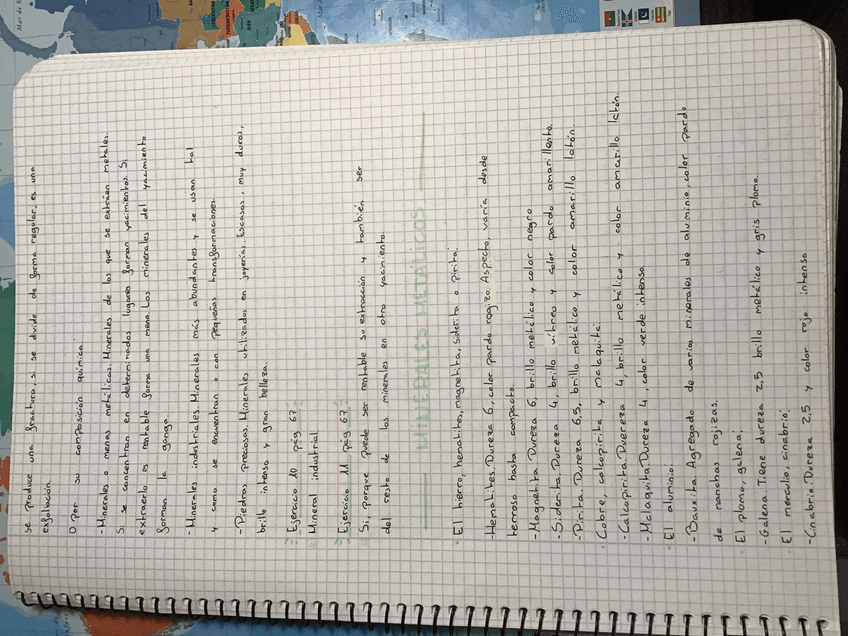 se produce una fractura, si se divide de forma regular, es una
exfoliación.
O por su composición química:
- Minerales o menas metálicas. Minerales de los que se extraen metales.
Si se concentran en determinados lugares forman yacimientos. Si
extraerlo es rentable forma una mena. Los minerales del yacimiento
forman la ganga.
- Minerales industriales. Minerales más abundantes y se usan tal
y como se encuentran o con pequeñas transformaciones.
- Piedras preciosas. Minerales utilizados en joyería. Escasos, muy duros,
brillo intenso y gran belleza.
Ejercicio 10 pág 67:
Mineral industrial.
Ejercicio 11 pág 67:
Si, porque puede ser rentable su extracción y también ser
del resto de los minerales en otro yacimiento.
MINERALES METÁLICOS
El hierro, hematites, magnetita, siderita o pirita:
- Hematites. Dureza 6, color pardo rogizo. Aspecto, varía desde
terroso hasta compacto.
- Magnetita Dureza 6, brillo metálico y color negro.
- Siderita Dureza 4, brillo vítreo y color pardo amarillento.
- Pirita. Dureza 6,5, brillo metálico y color amarillo latón.
Cobre, calcopirita y malaquita:
- Calcopirita. Duereza 4, brillo metálico y color amarillo latón.
- Malaquita Dureza 4, color verde intenso.
El aluminio.
- Bauxita. Agregado de varios minerales de aluminio, color pardo
de manchas rojizas.
El plomo, galena:
- Galena. Tiene dureza 2,5 brillo metálico y gris plomo.
El mercurio, cinabrio:
- Cinabrio. Dureza 2,5 y color rojo intenso